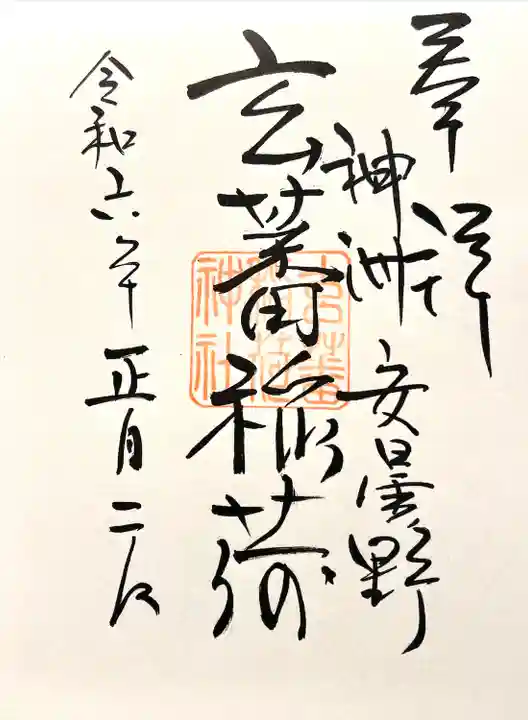 奉拝
神州 安曇野
玄蕃稲荷
玄蕃
稲荷
神社
令和六年正月二日